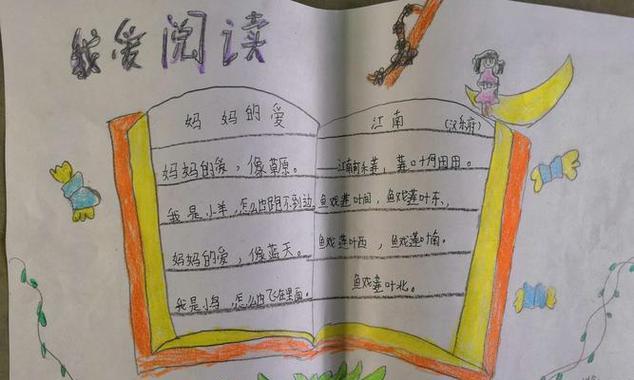 我爱阅读
妈妈的爱
妈妈的爱，像草原。
我是小羊，怎么也跑不到边
妈妈的爱，像蓝天。
我是小鸟，怎么也飞在里面。
江南 (汉乐府)
江南可采莲，莲叶何田田。
鱼戏莲叶间，鱼戏莲叶东，
鱼戏莲叶西，鱼戏莲叶南，
鱼戏莲叶北。